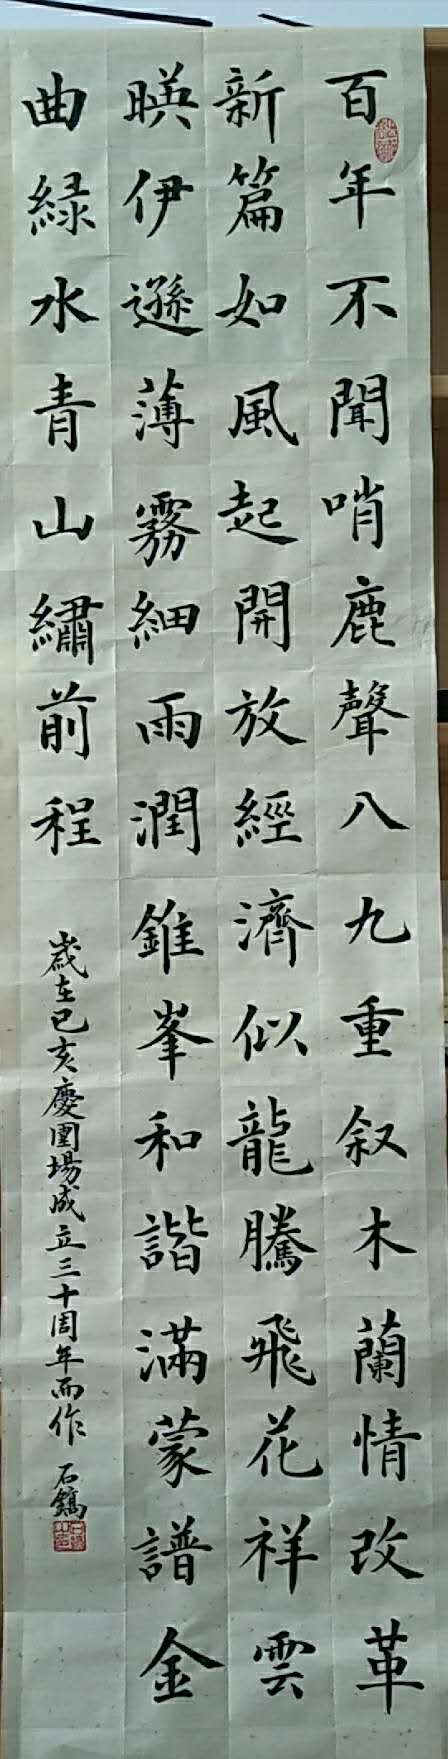 百年不聞哨鹿聲八九重叙木蘭情改革
新篇如風起開放經濟似龍騰飛花祥雲
暎伊遜薄霧細雨潤錐峯和諧滿蒙譜金
曲緑水青山繡前程
歲在己亥慶圍場成立三十周年而作 石鎬